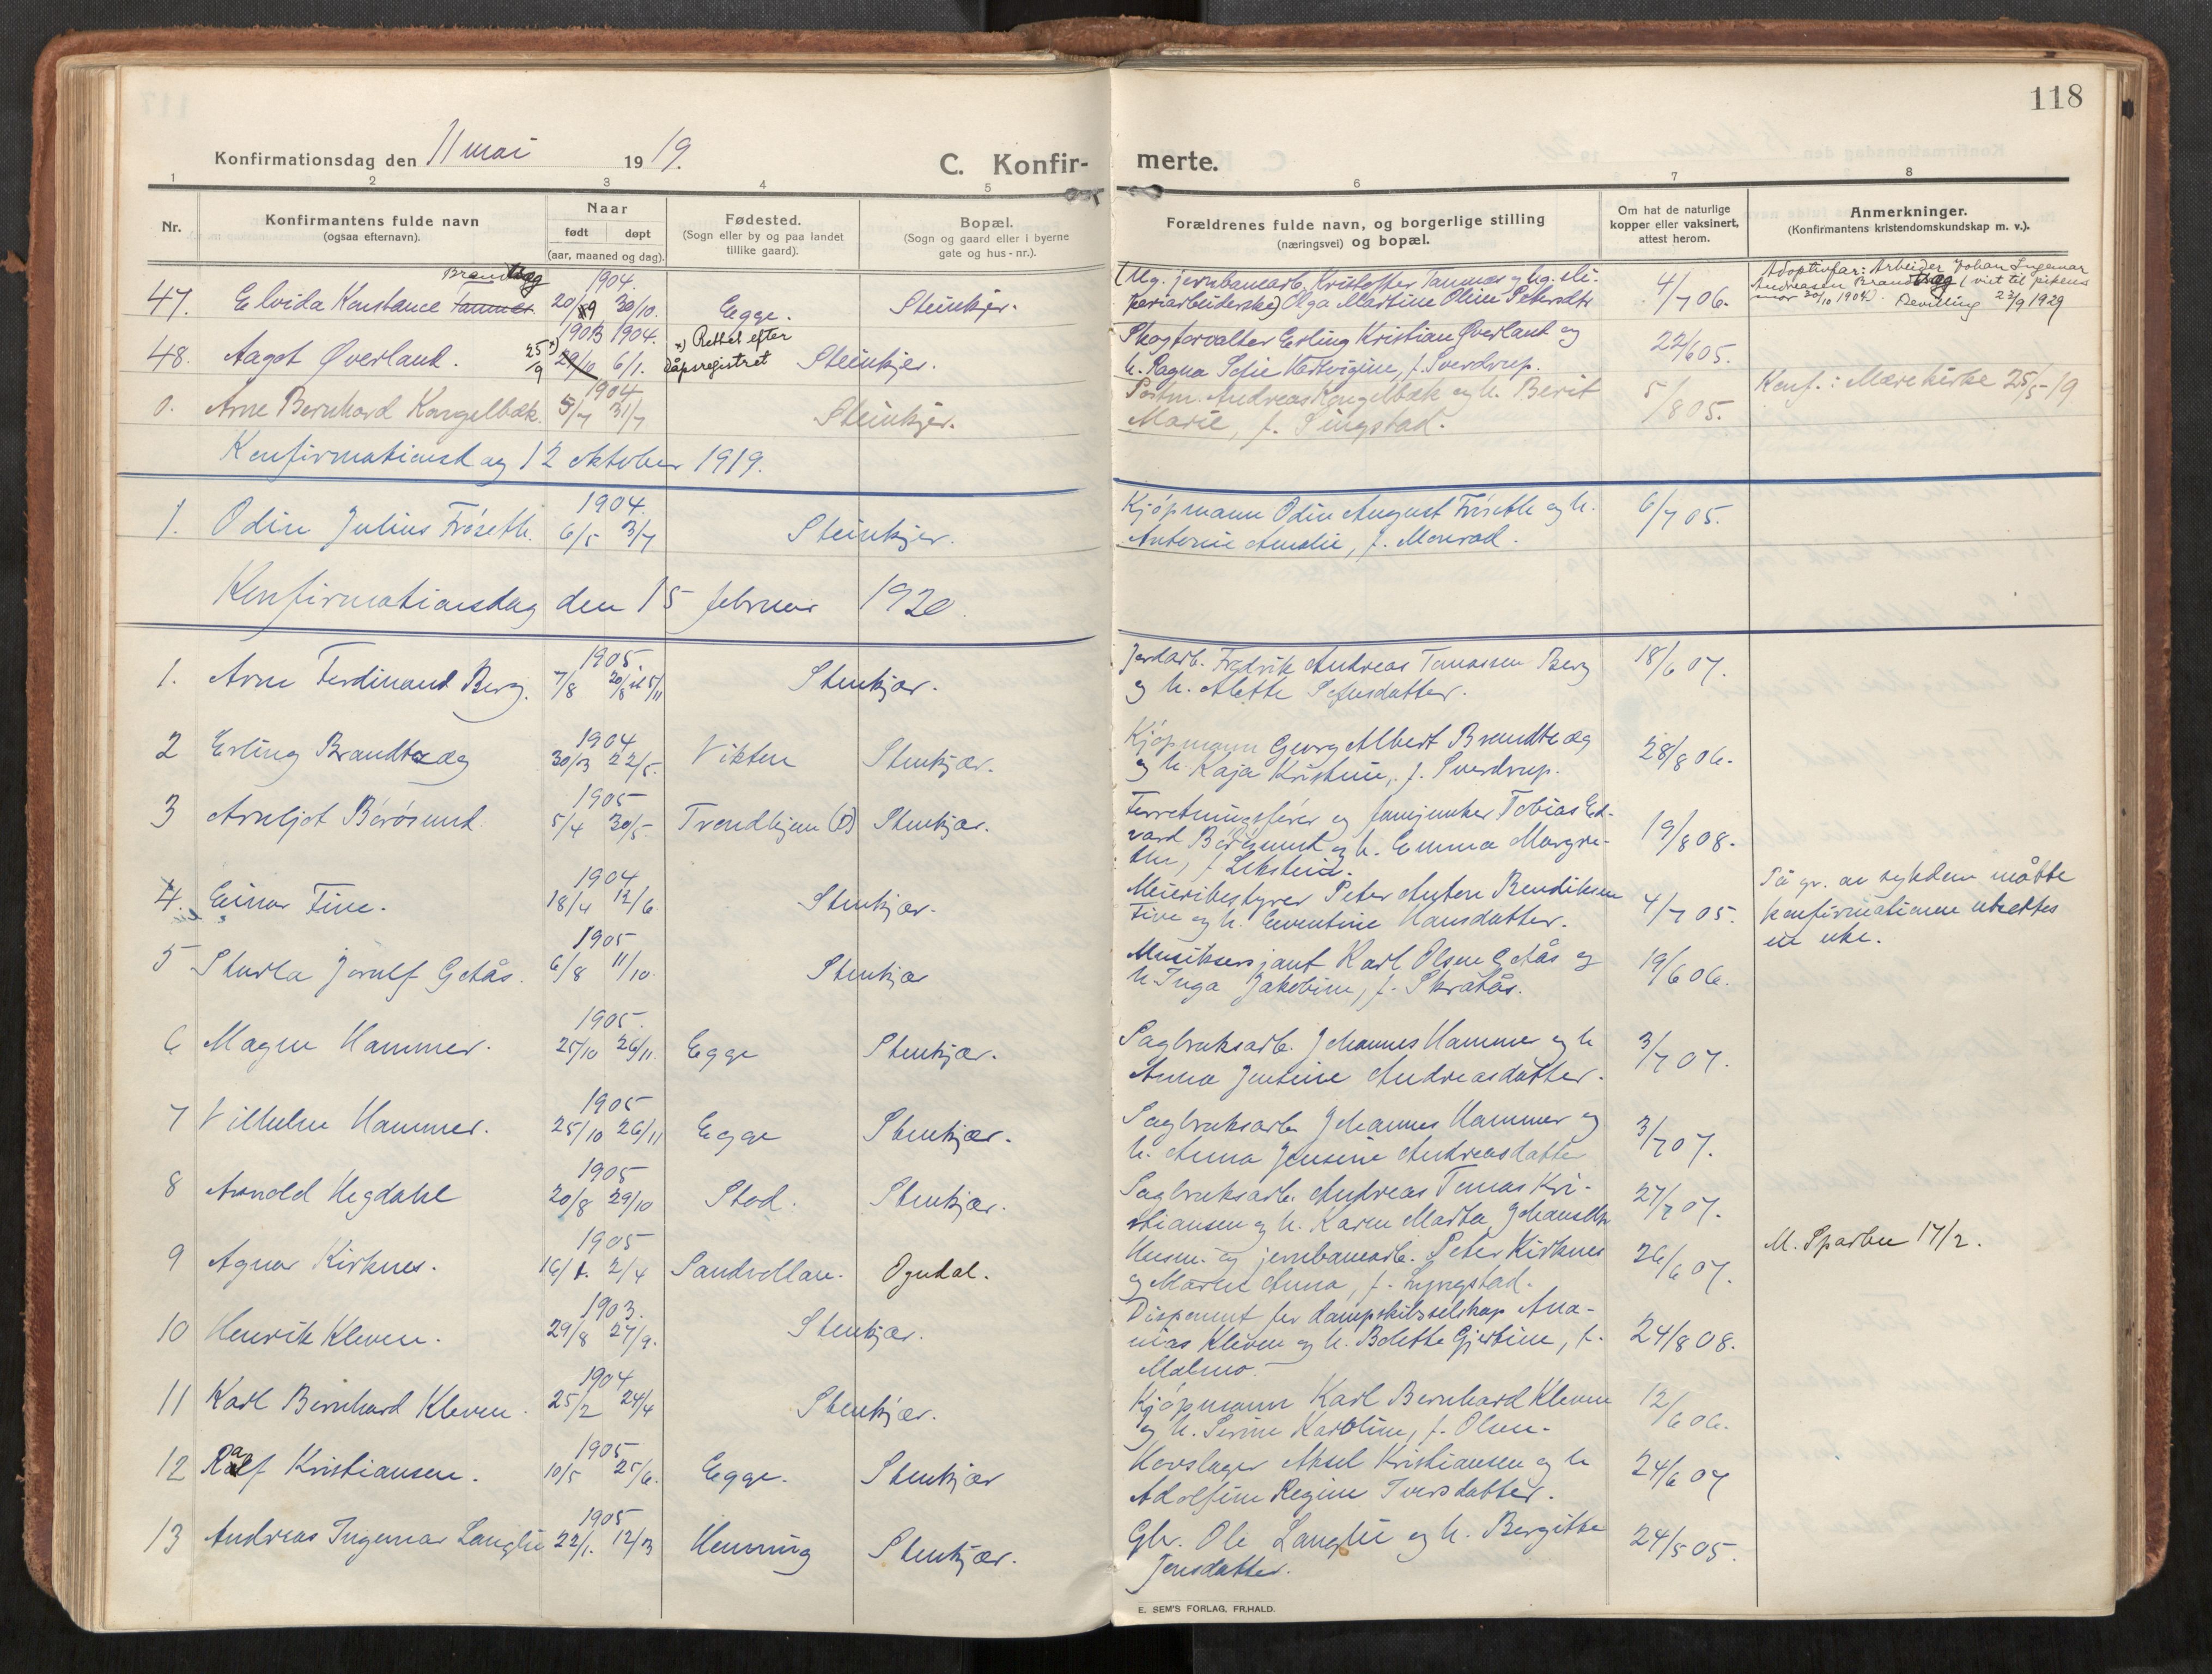 118
Konfirmationsdag den 11 mai 1919.
C. Konfir-
merte.
1 2 3 4 5 6 7 8
Nr.
Konfirmantens fulde navn
(ogsaa efternavn).
Naar
født døpt
(aar, maaned og dag).
Fødested.
(Sogn eller by og paa landet
tillike gaard).
Bopæl.
(Sogn og gaard eller i byerne
gate og hus-nr.).
Forældrenes fulde navn, og borgerlige stilling
(næringsvei) og bopæl.
Om hat de naturlige
kopper eller vaksinert,
attest herom.
Anmerkninger.
(Konfirmantens kristendomskundskap m. v.).
1904.
47. Elvida Konstance 20/9 30/10. Egge. Steinkjer.
Ug. jernbanearb. Kristoffer Tanmæs og ug.
Olga Martine Oline Petersdtr
4/7 06.
Adoptivfar: Arbeider Johan Ingemar
Andreasen (viet til pikens
mor 30/10 1904). Bevilling 23/9 1929
1903 1904.
48. Aagot Øverland. 25/9 x) 29/10 6/1. x) Rettet efter
dåpsregistret Steinkjer.
Skogforvalter Erling Kristian Øverland og
h. Ragna Sofie Hartvigine, f. Sverdrup.
22/6 05.
1904
0. Arne Bernhard Kongelbæk. 5/7 31/7 Steinkjer.
Postm. Andreas Kongelbæk og h. Berit
Marie, f. Singstad.
5/8 05.
Konf. i Mære kirke 25/5-19
Konfirmationsdag 12 oktober 1919.
1904.
1. Odin Julius Frøseth. 6/5 3/7 Steinkjer.
Kjøpmann Odin August Frøseth og h.
Antonie Amalie, f. Monrad.
6/7 05.
Konfirmationsdag den 15 februar 1920.
1905.
1. Arne Ferdinand Berg. 7/8 20/8 st 5/11 Stenkjær.
Jordarb. Fredrik Andreas Tomassen Berg
og h. Alette Sefusdatter.
18/6 07.
1904
2 Erling Brandtzæg 30/3 22/5. Vikten Stenkjær.
Kjøpmann Georg Albert Brandtzæg
og h. Kaja Kristine, f. Sverdrup.
28/8 06.
1905
3 Arnljot Børøsund. 5/4 30/5. Trondhjem (D) Stenkjær.
Forretningsfører og fanejunker Tobias Ed-
vard Børøsund og h. Emma Margre-
the, f. Leksteid.
19/8 08.
1904
4. Einar Five. 18/4 12/6 Stenkjær.
Meieribestyrer Peter Anton Bendiksen
Five og h. Eventine Hansdatter.
4/7 05.
På gr. av sykdom måtte
konfirmationen utsettes
en uke.
1905
5 Sturla Jørulf Getås. 6/8 11/10. Stenkjær
Musiksersjant Karl Olsen Getås og
h. Inga Jakobine, f. Skråtås.
19/6 06.
1905.
6 Magne Hammer. 25/10 26/11. Egge Stenkjær.
Sagbruksarb. Johannes Hammer og h
Anna Jensine Andreasdatter.
3/7 07.
1905
7 Vilhelm Hammer. 25/10 26/11 Egge Stenkjær.
Sagbruksarb. Johannes Hammer og
h. Anna Jensine Andreasdatter
3/7 07.
1905
8 Arnold Hegdahl 20/8 29/10 Stod. Stenkjær.
Sagbruksarb. Andreas Tomas Kri-
stiansen og h. Karen Marta Johansdtr
27/7 07.
1905
9 Agnar Kirknes. 16/1. 2/4 Sandvollan. Ogndal.
Husm. og jernbanearb. Peter Kirknes
og Maren Anna, f. Lyngstad.
26/6 07.
M. Sparbu 17/2.
1903.
10 Henrik Kleven. 29/8 27/9. Stenkjær.
Disponent for dampskibsselskap Ana-
nias Kleven og h. Bolette Gjertine, f.
Malmo.
24/8 08.
1904
11 Karl Bernhard Kleven. 25/2 24/4 Stenkjær.
Kjøpmann Karl Bernhard Kleven
og h. Serine Karoline, f. Olsen.
12/6 06.
1905
12 Ralf Kristiansen. 10/5 25/6. Egge. Stenkjær
Hovslager Aksel Kristiansen og h
Adolfine Regine Iversdatter.
24/6 07
1905
13 Andreas Ingemar Langlie 22/1. 12/3 Henning Stenkjær.
Gbr. Ole Langlie og h. Bergitte
Jensdatter.
24/5 05.
E. SEM'S FORLAG, FR.HALD.